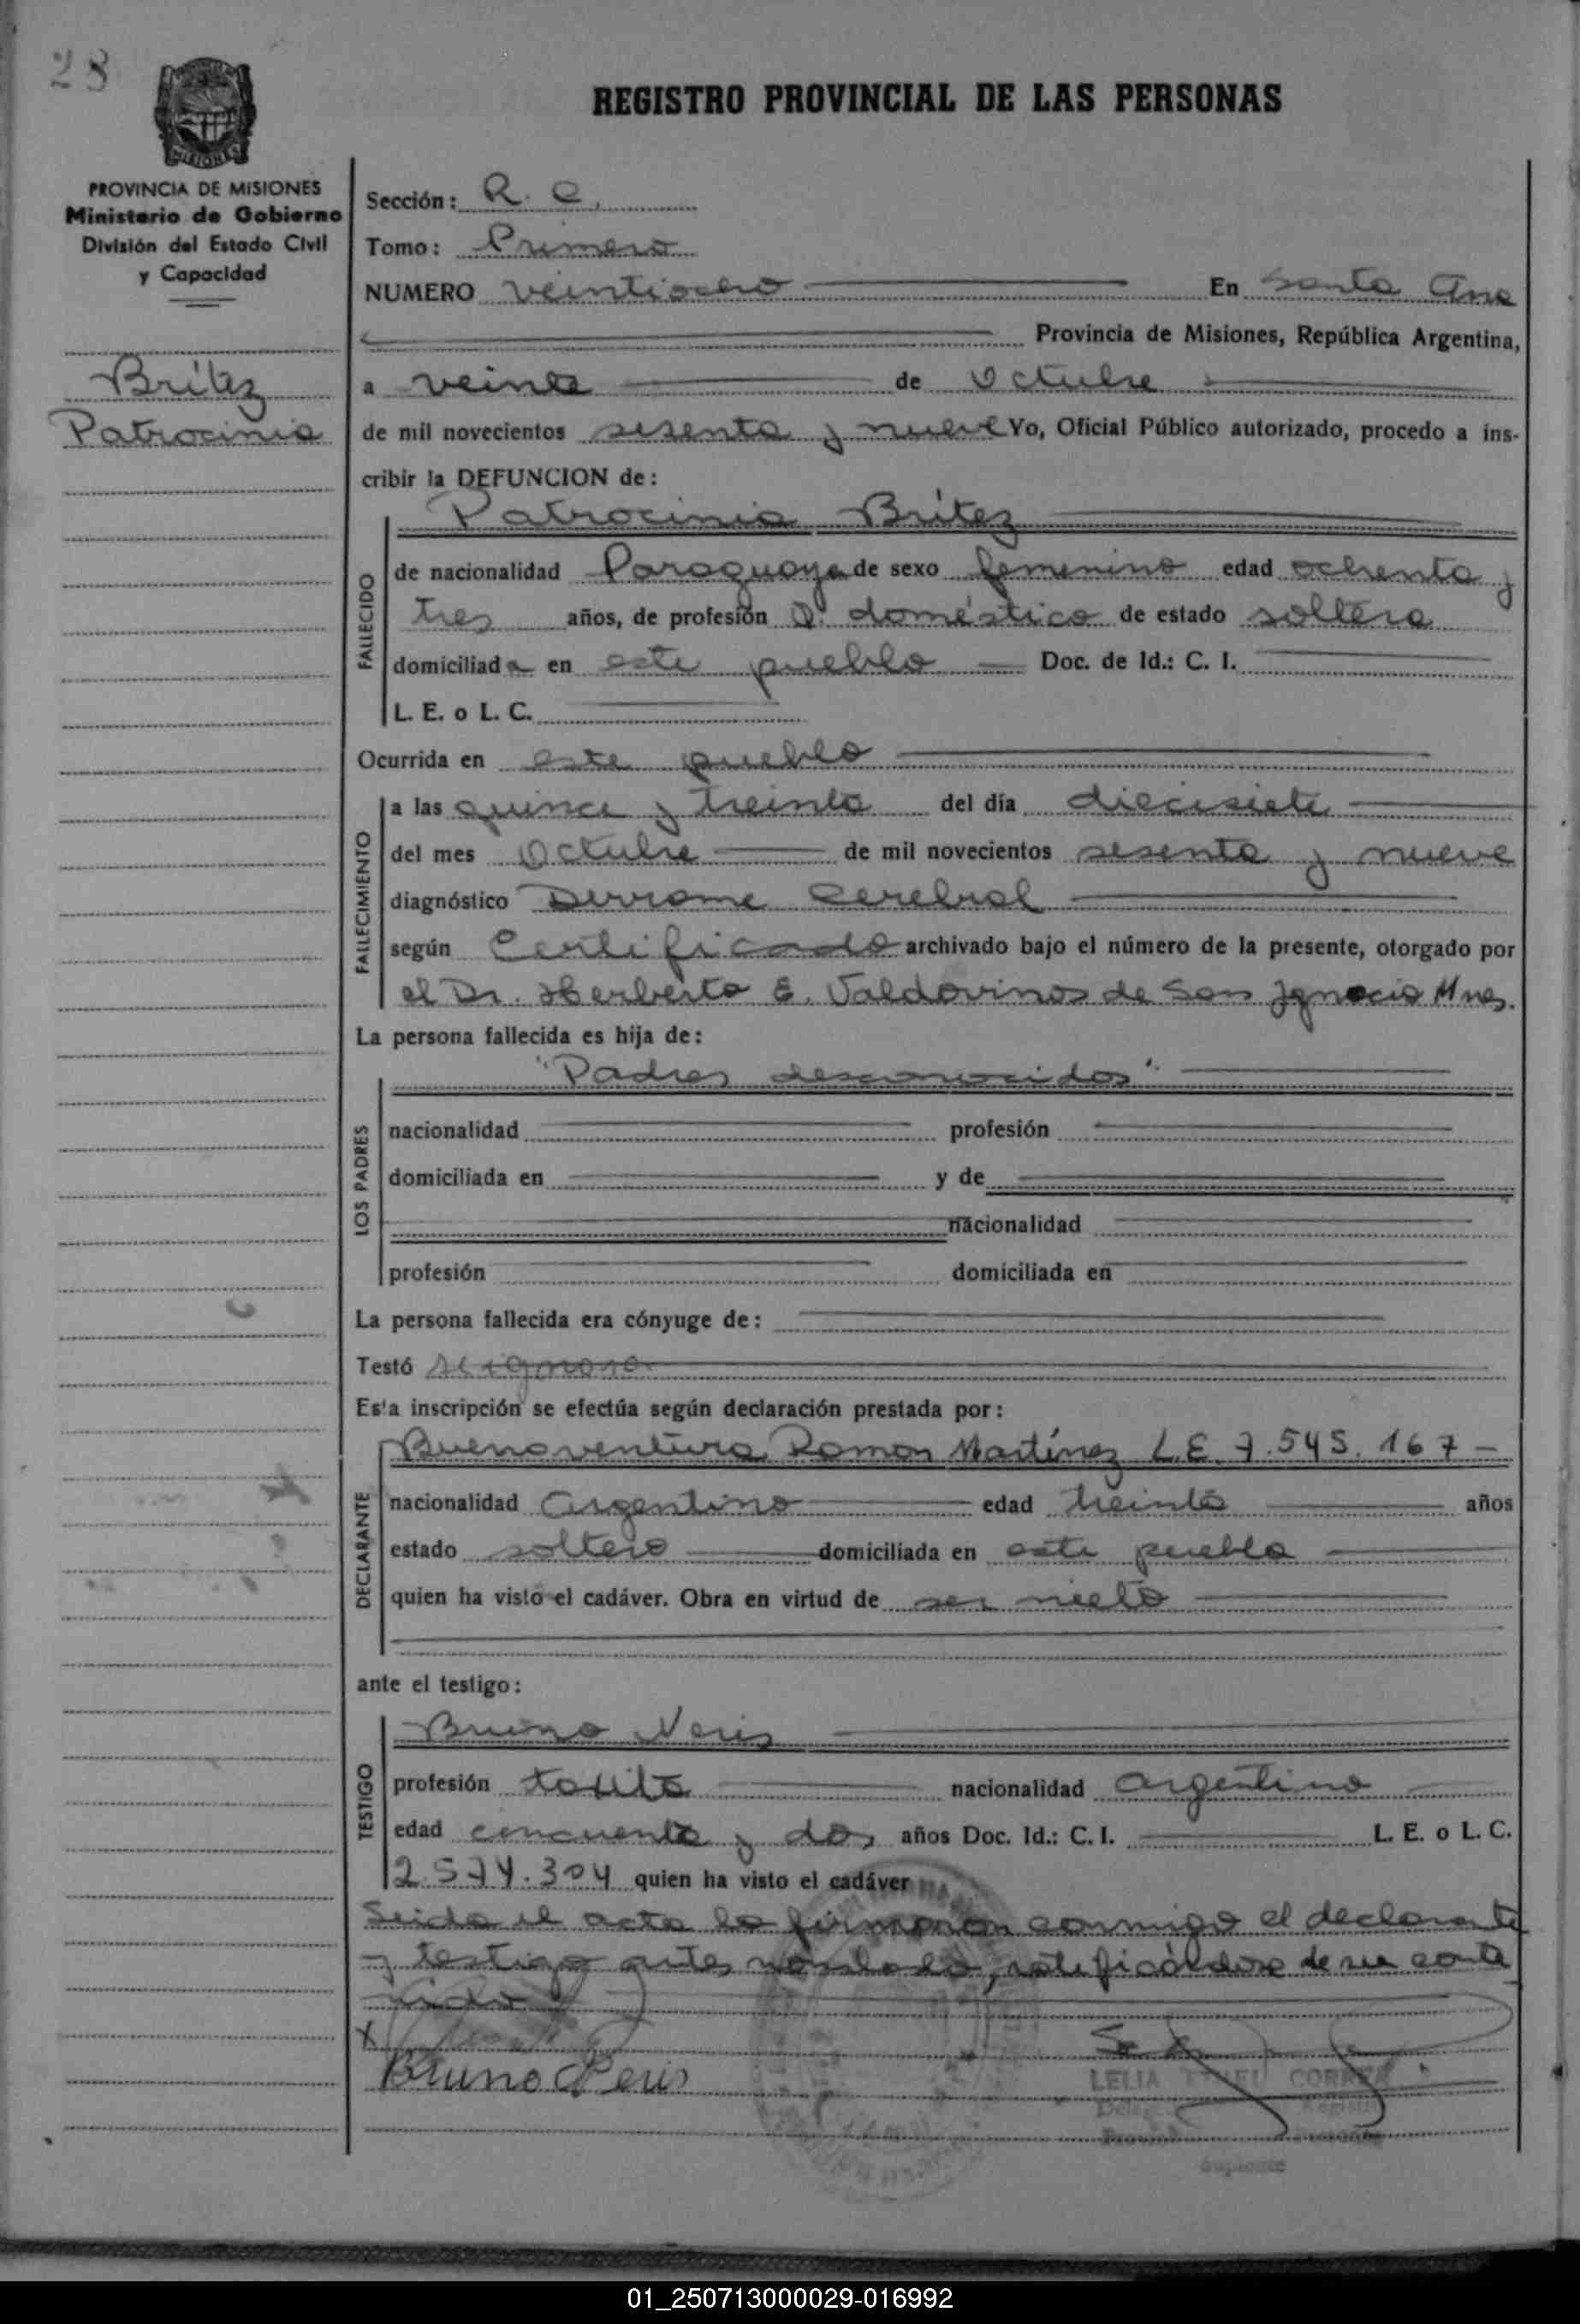 28
REGISTRO PROVINCIAL DE LAS PERSONAS
MISIONES
PROVINCIA DE MISIONES
Ministerio de Gobierno
División del Estado Civil
y Capacidad
Brítez
Patrocinia
Sección: R. C.
Tomo: Primero
NUMERO veintiocho En Santa Ana
Provincia de Misiones, República Argentina,
a veinte de Octubre
de mil novecientos sesenta y nueve Yo, Oficial Público autorizado, procedo a ins-
cribir la DEFUNCION de:
Patrocinia Brítez
FALLECIDO
de nacionalidad Paraguaya de sexo femenino edad ochenta y
tres años, de profesión Q. doméstico de estado soltera
domiciliada en este pueblo Doc. de Id.: C. I.
L. E. o L. C.
Ocurrida en este pueblo
FALLECIMIENTO
a las quince y treinta del día diecisiete
del mes Octubre de mil novecientos sesenta y nueve
diagnóstico Derrame Cerebral
según Certificado archivado bajo el número de la presente, otorgado por
el Dr. Herberto E. Valdovinos de San Ignacio Mnes.
La persona fallecida es hija de:
"Padres desconocidos"
LOS PADRES
nacionalidad profesión
domiciliada en y de
nacionalidad
profesión domiciliada en
La persona fallecida era cónyuge de:
Testó se ignora
Esta inscripción se efectúa según declaración prestada por:
Buenaventura Ramon Martínez L.E. 7.545.167-
DECLARANTE
nacionalidad Argentino edad treinta años
estado soltero domiciliada en este pueblo
quien ha visto el cadáver. Obra en virtud de ser nieto
ante el testigo:
Bruno Neris
TESTIGO
profesión nacionalidad argentino
edad cincuenta y dos años Doc. Id.: C. I. L. E. o L. C.
2.574.304 quien ha visto el cadáver
Leida el acta la firmaron conmigo el declarante
y testigo antes nombrado, ratificáldose de su conte
nido
X
Bruno Neris
LELIA ETHEL CORREA
Suplente
01_250713000029-016992